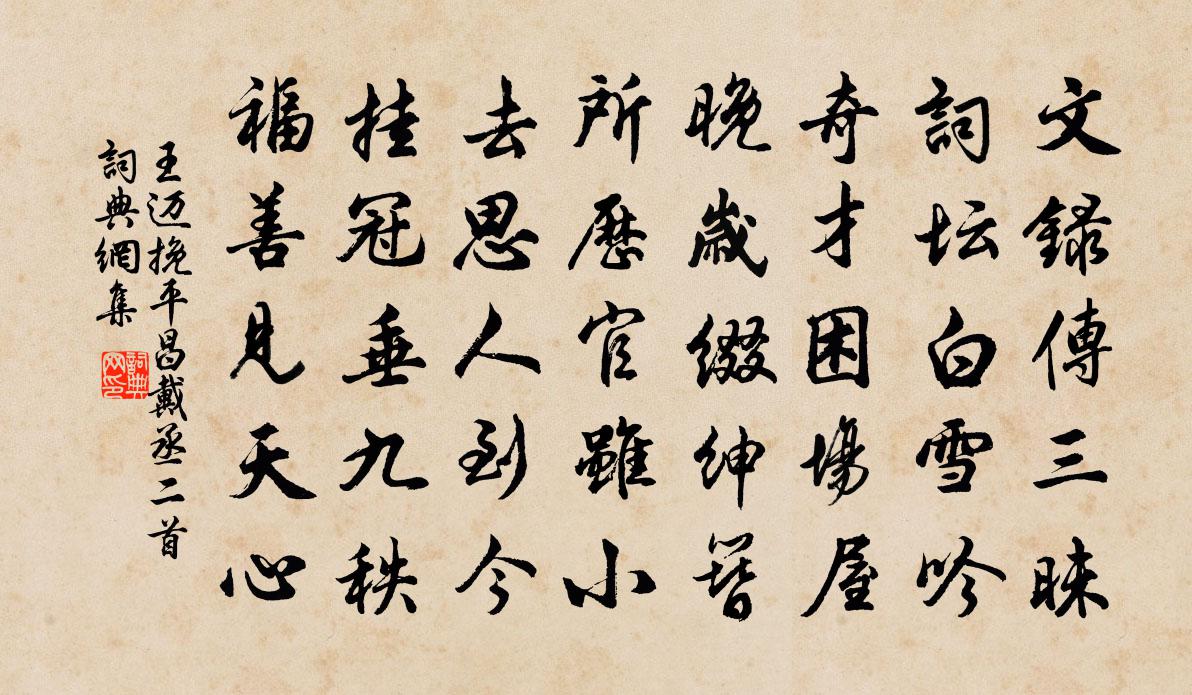 文錄傳三昧
詞坛白雪吟
奇才困場屋
晚歲綴紳簪
所歷官雖小
去思人到今
挂冠垂九秩
福善見天心
王迈挽平昌戴丞二首
詞典網集
詞典网印